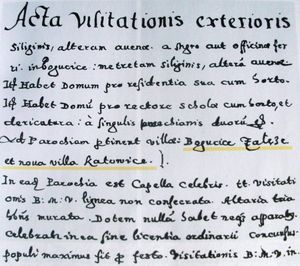 Acta visitationis exterioris
siliginis, alteram avenæ. a shģro aut officina fer
ri. in bogucice: metretam siliginis, alterā avenæ
Itē Habet Domum pro residentia sua cum horto.
Itē Habet Domū pro rectore scholæ cum horto, et
clericatera: à singulis parochianis duorū
Ad Parochiam ptinent villæ: Bogucice Załęże
et nova villa Katowice.
In eadē Parochia est Capella Celebris. tt. visitati
onis B: M: V: lignea non consecrata. Altaria tria
murata. Dotem nullā habet neqȝ apparatȝ
celebratur in ea sine licentia ordinarii concursus
populi maximus fit p festo. Visitationis B: M: V: in